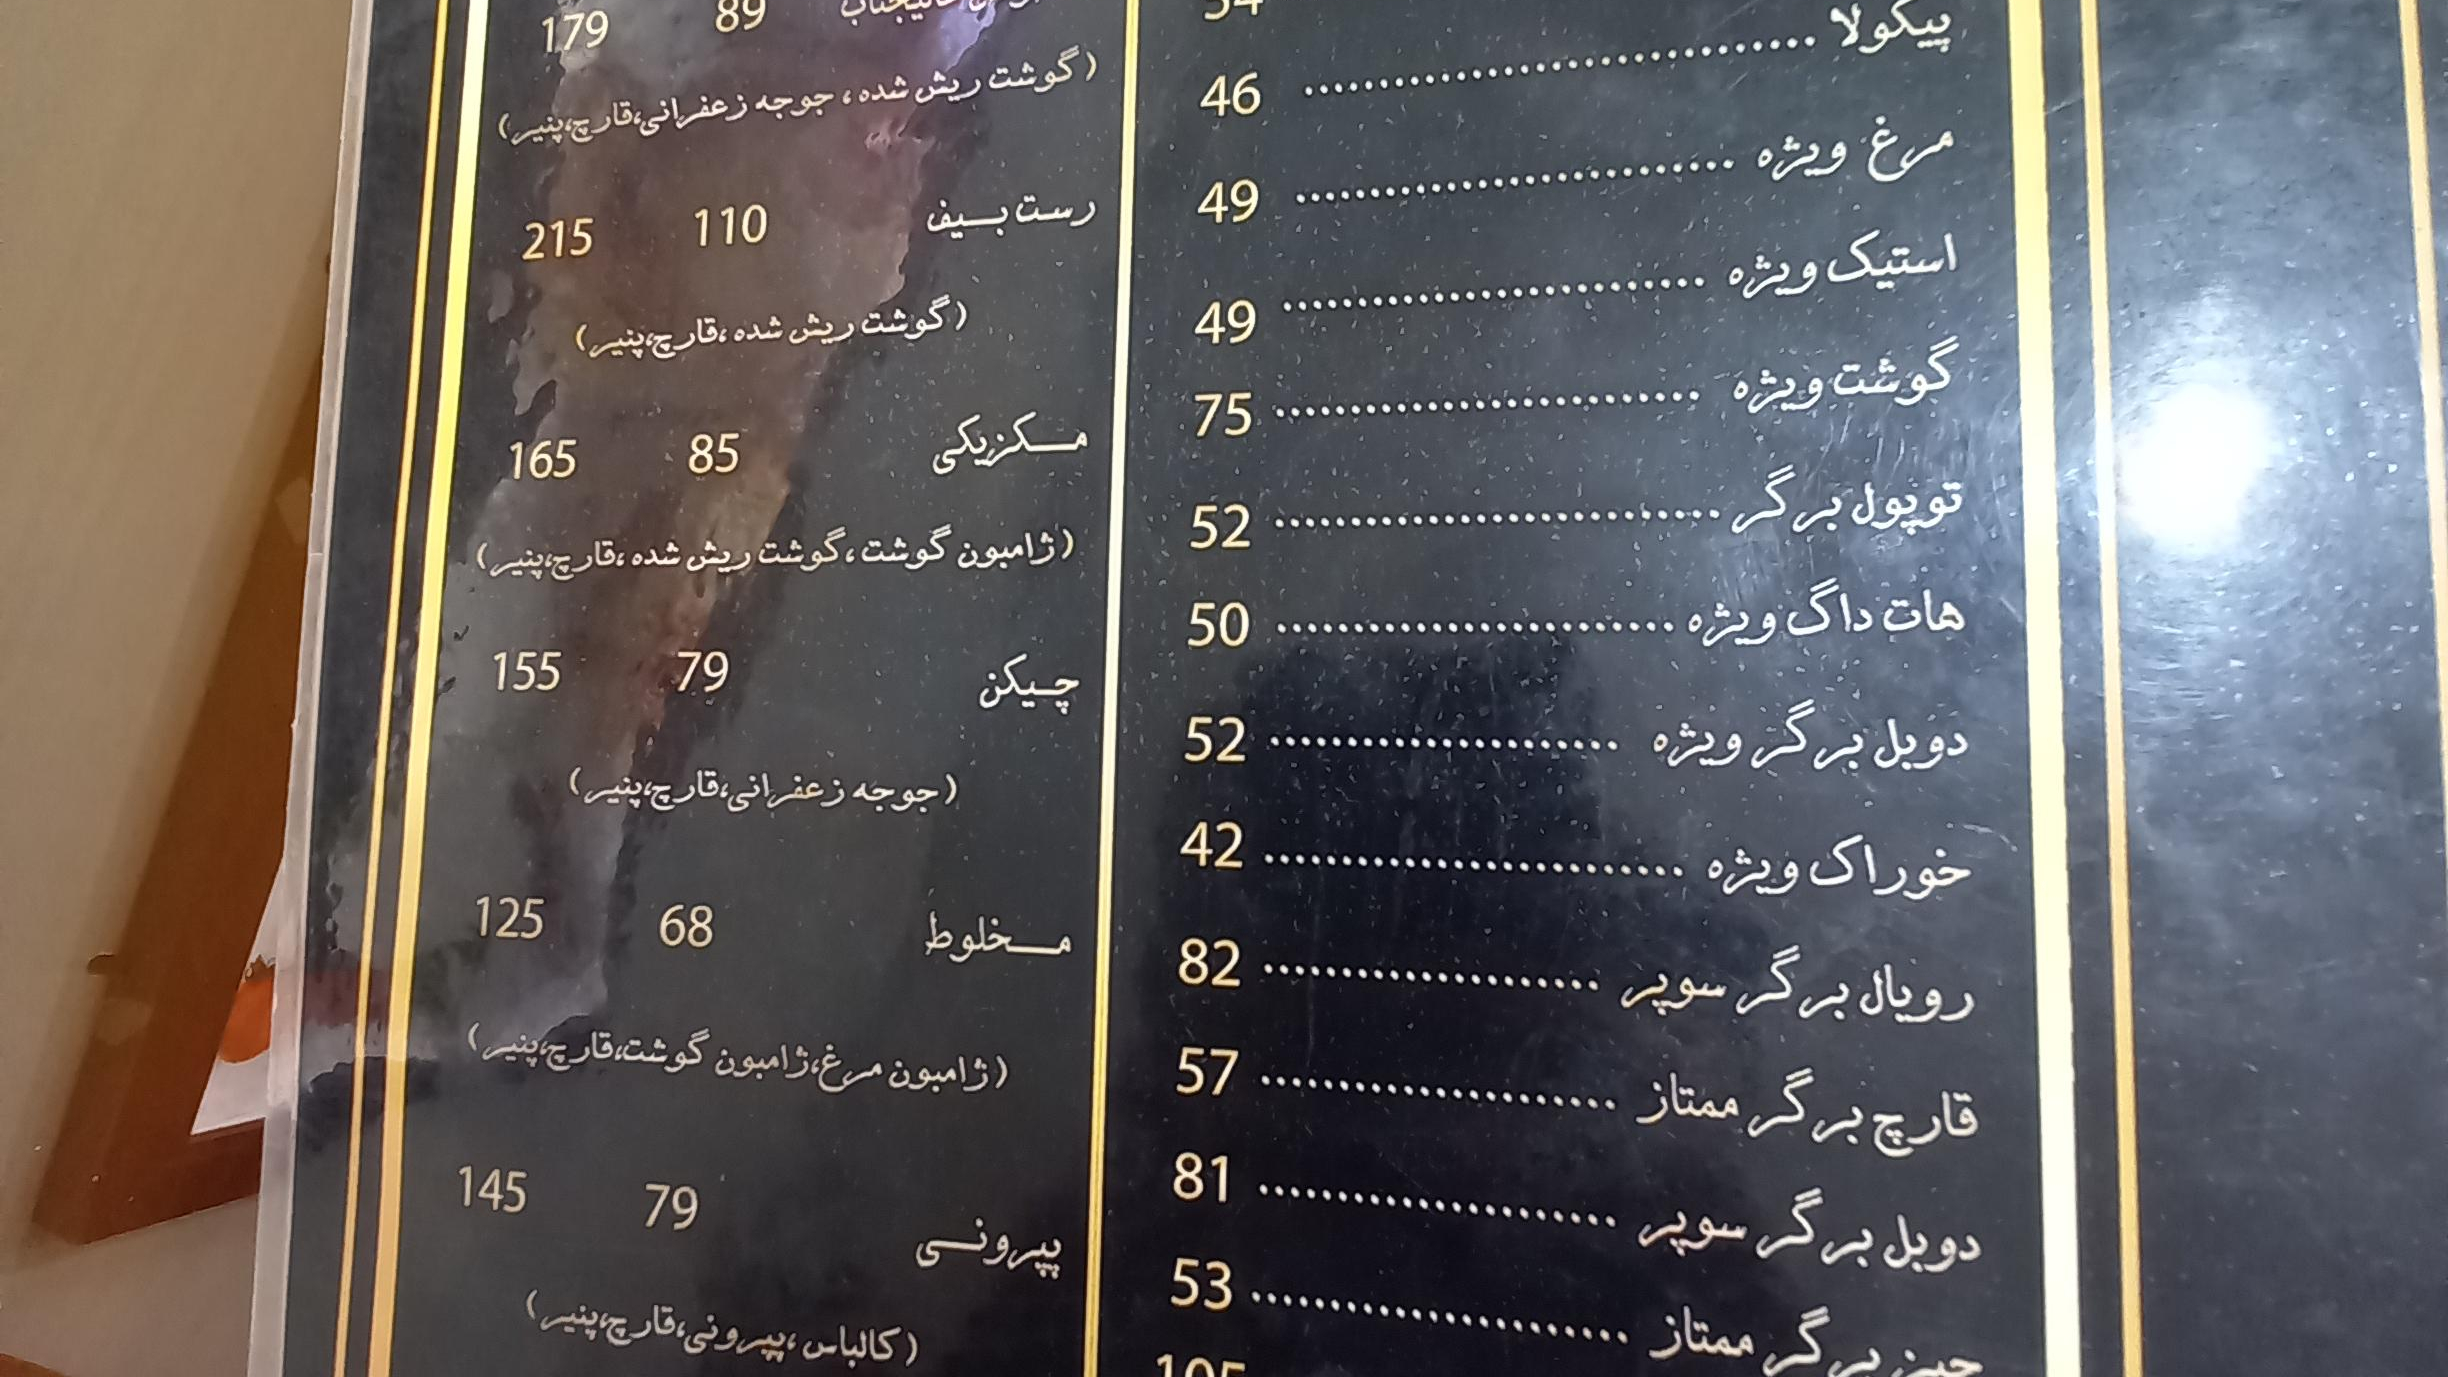 پیکولا ........ 46
مرغ ویژه ........ 49
استیک ویژه ........ 49
گوشت ویژه ........ 75
توپول برگر ........ 52
هات داگ ویژه ........ 50
دوبل برگر ویژه ........ 52
خوراک ویژه ........ 42
رویال برگر سوپر ........ 82
قارچ برگر ممتاز ........ 57
دوبل برگر سوپر ........ 81
چیز برگر ممتاز ........ 53
105
89 179
(گوشت ریش شده، جوجه زعفرانی،قارچ،پنیر)
رست بیف 110 215
(گوشت ریش شده،قارچ،پنیر)
مکزیکی 85 165
(ژامبون گوشت،گوشت ریش شده،قارچ،پنیر)
چیکن 79 155
(جوجه زعفرانی،قارچ،پنیر)
مخلوط 68 125
(ژامبون مرغ،ژامبون گوشت،قارچ،پنیر)
پپرونی 79 145
(کالباس،پپرونی،قارچ،پنیر)